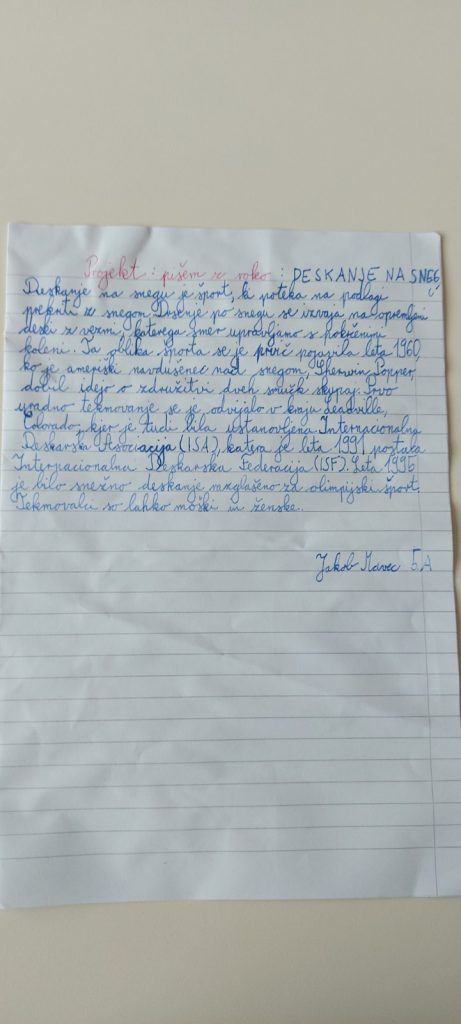 Projekt: pišem z roko: DESKANJE NA SNEGU
Deskanje na snegu je šport, ki poteka na podlagi
prekriti z snegom. Drsenje po snegu se izvaja na opremljeni
deski z vezmi, katerega smer upravljamo s pokrčenimi
koleni. Ta oblika športa se je prvič pojavila leta 1960,
ko je ameriški navdušenec nad snegom, Sherwin Popper,
dobil idejo o združitvi dveh smučk skupaj. Prvo
uradno tekmovanje se je odvijalo v kraju Leadville,
Colorado, kjer je tudi bila ustanovljena Internacionalna
Deskarska Asociacija (ISA), katera je leta 1991 postala
Internacionalna Deskarska Federacija (ISF). Leta 1995
je bilo snežno deskanje razglašeno za olimpijski šport.
Tekmovalci so lahko moški in ženske.
Jakob 5.A